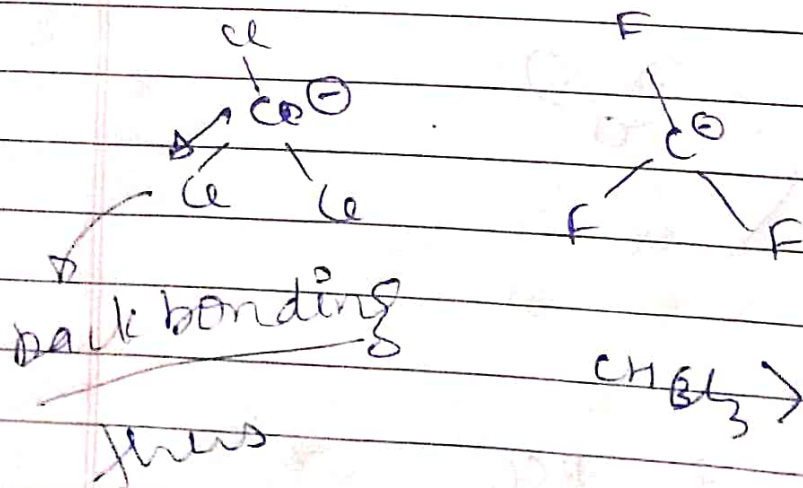 Cl F
C ⊖ C ⊖
Cl Cl F F
back bonding
CHCl3 >
thus